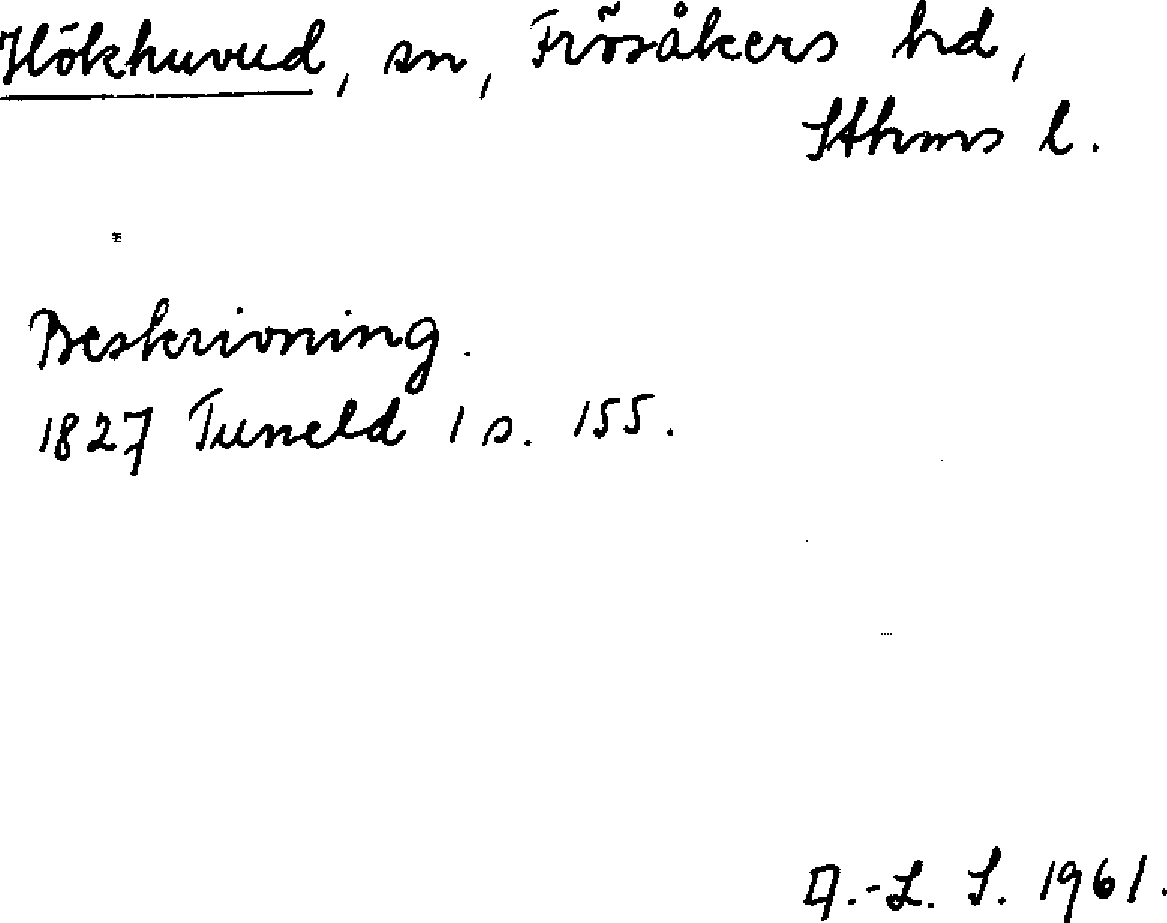 Hökhuvud, sn, Frösåkers hd,
Sthms l.
Beskrivning.
1827 Tuneld 1 s. 155.
A.-L. S. 1961.